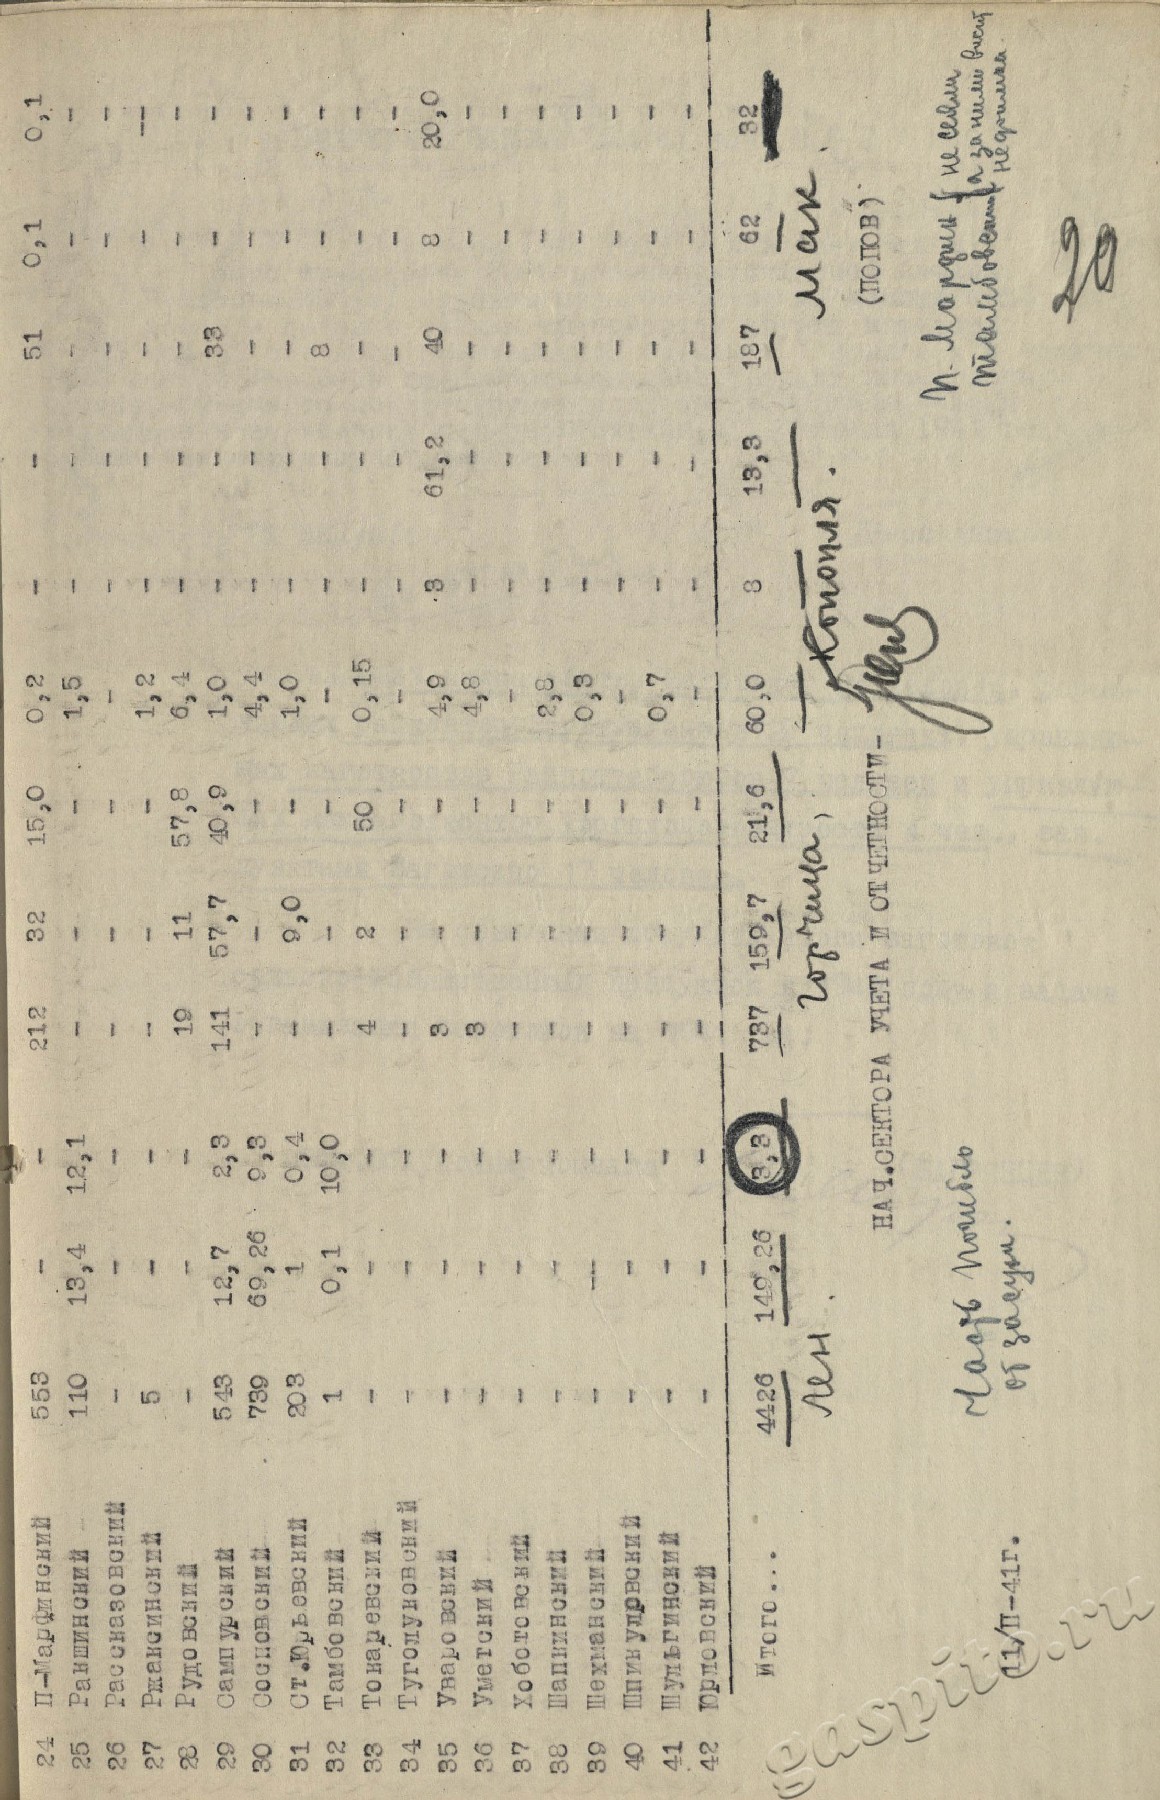 24 П-Марфинский 553 - - 212 32 15,0 0,2 - - 51 0,1 0,1
25 Ракшинский 110 13,4 12,1 - - - 1,5 - - - - -
26 Рассказовский - - - - - - - - - - - -
27 Ржаксинский 5 - - - - - 1,2 - - - - -
28 Рудовский - - - 19 11 57,8 6,4 - - - - -
29 Сампурский 543 12,7 2,3 141 57,7 40,9 1,0 - - 33 - -
30 Сосновский 739 69,26 9,3 - - - 4,4 - - - - -
31 Ст.Юрьевский 203 1 0,4 - 9,0 - 1,0 - - - - -
32 Тамбовский 1 0,1 10,0 - - - - - - 8 - -
33 Токаревский - - - 4 2 50 0,15 - - - - -
34 Туголуковский - - - - - - - - - - - -
35 Уваровский - - - 3 - - 4,9 3 61,2 40 8 20,0
36 Уметский - - - 3 - - 4,8 - - - - -
37 Хоботовский - - - - - - - - - - - -
38 Шапкинский - - - - - - 2,8 - - - - -
39 Шехманский - - - - - - 0,3 - - - - -
40 Шпикуловский - - - - - - - - - - - -
41 Шульгинский - - - - - - 0,7 - - - - -
42 Юрловский - - - - - - - - - - - -
Итого... 4426 149,26 3,3 737 159,7 21,6 60,0 8 13,3 187 62 32
Лен. Горчица, Конопля. Мак.
НАЧ.СЕКТОРА УЧЕТА И ОТЧЕТНОСТИ- (ПОПОВ)
Часть погибло
от засухи.
П-Марфин не сеяли
Тамбовский а за ними висит
недоимка
11/II-41г.
20
gaspito.ru